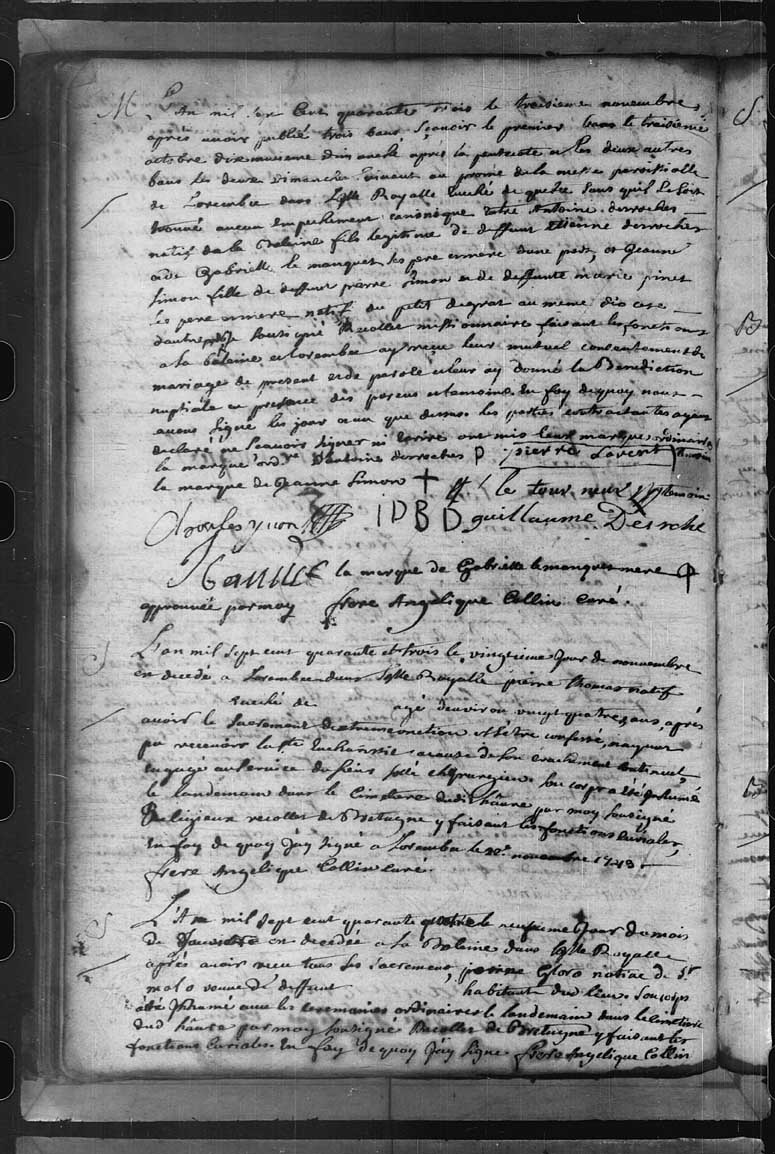 M L'An mil sept cent quarante trois le troisieme nouembre
apres auoir publié trois bans, sçauoir le premier bans le troisieme
octobre dixneuueme dimanche apres la pentecote et les deux autres
bans les deux dimanches suiuent au prome de la messe paroissialle
de Lorembec dans L'isle Royalle Euéché de quebec sans quil se soit
trouué aucun Empechement canonique entre Antoine derroches
natif de la Baleine fils legitime de deffunt Etienne derroches
et de Gabrielle le manquet ses pere et mere dune part, et Jeanne
Simon fille de deffunt pierre Simon et de deffunte marie pinet
ses pere et mere natif du petit degrat au meme diocese
dautre part Je soussigné Recollet missionnaire faisant les fonctions
a la baleine et Lorembec ay receu leur mutuel consentement de
mariage de present et de parole et leur ay donné la Benediction
nuptiale en presence des parens et temoins. En foy dequoy nous
auons signé les jour et an que dessus. les parties contractantes ayant
declaré ne sçauoir signer ni ecrire ont mis leur marque ordinaire
la marque ord.re d'antoine derroches P pierre Lorent temoin
la marque de Jeanne Simon + le tour neux temoin
Charles yuon IDBD guillaume Desroche
la marque de Gabrielle le manquet mere
approuuée par moy frere Angelique Collin curé.
S L'an mil sept cent quarante et trois le vingtieme Jour de nouuembre
est decedé a Lorembec dans L'isle Royalle pierre thomas natif
Euéché de agé denviron vingt quatre ans, apres
auoir le Sacrement dextremeonction et s'être confessé, nayant
pu recevoir la ste Eucharistie a cause de son crachement continuel
Engagé au service du Siens chyrurgien. Son corps a été Inhumé
le landemain dans le Cimetiere dudit hâure par moy soussigné
Religieux recollet de Bretagne y faisant les fonctions Curiales,
En foy de quoy J'ay signé a Lorembec le 20e nouembre 1743
frere Angelique Collin curé.
S L'An mil sept cent quarante quatre le neufieme Jour du mois
de Januier est decedée a la Baleine dans L'isle Royalle
apres auoir receu tous les Sacremens, perinne natiue de St
malo veuue de deffunt habitant dud lieu. Son corps
a été Inhumé auec les ceremonies ordinaires le landemain dans le Cimetiere
dud hâure par moy soussigné Recollet de Bretagne y faisant les
fonctions Curiales. En foy de quoy J'ay signé. frere Angelique Collin